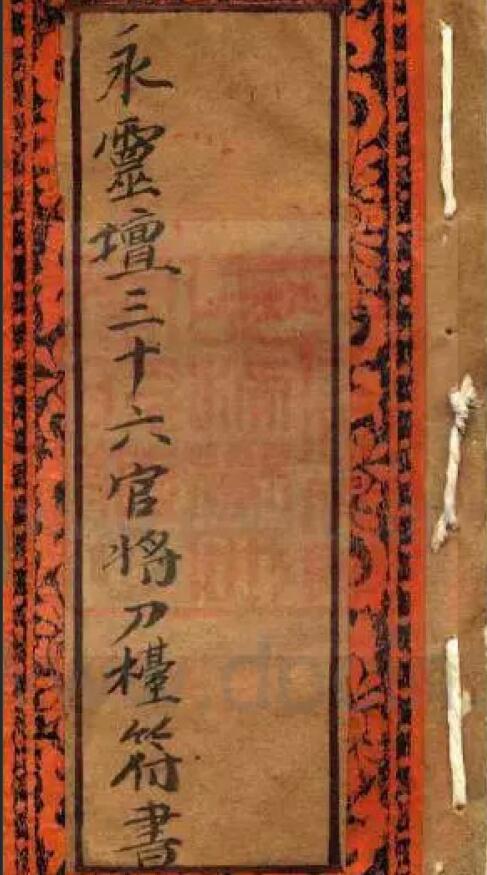 永靈壇三十六官將刀檯符書